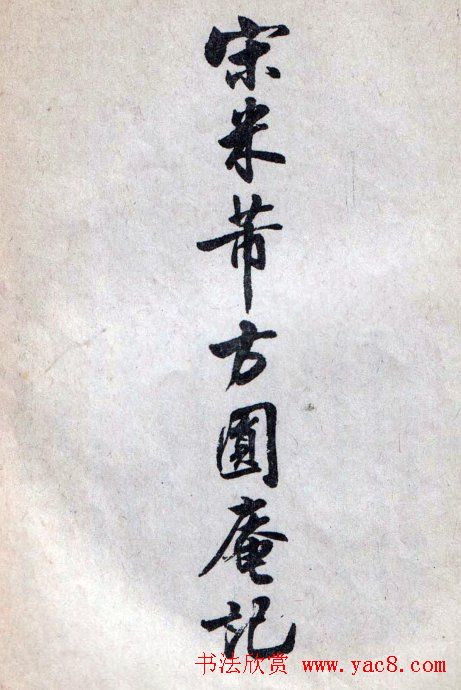 宋米芾方圓庵記
书法欣赏 www.yac8.com